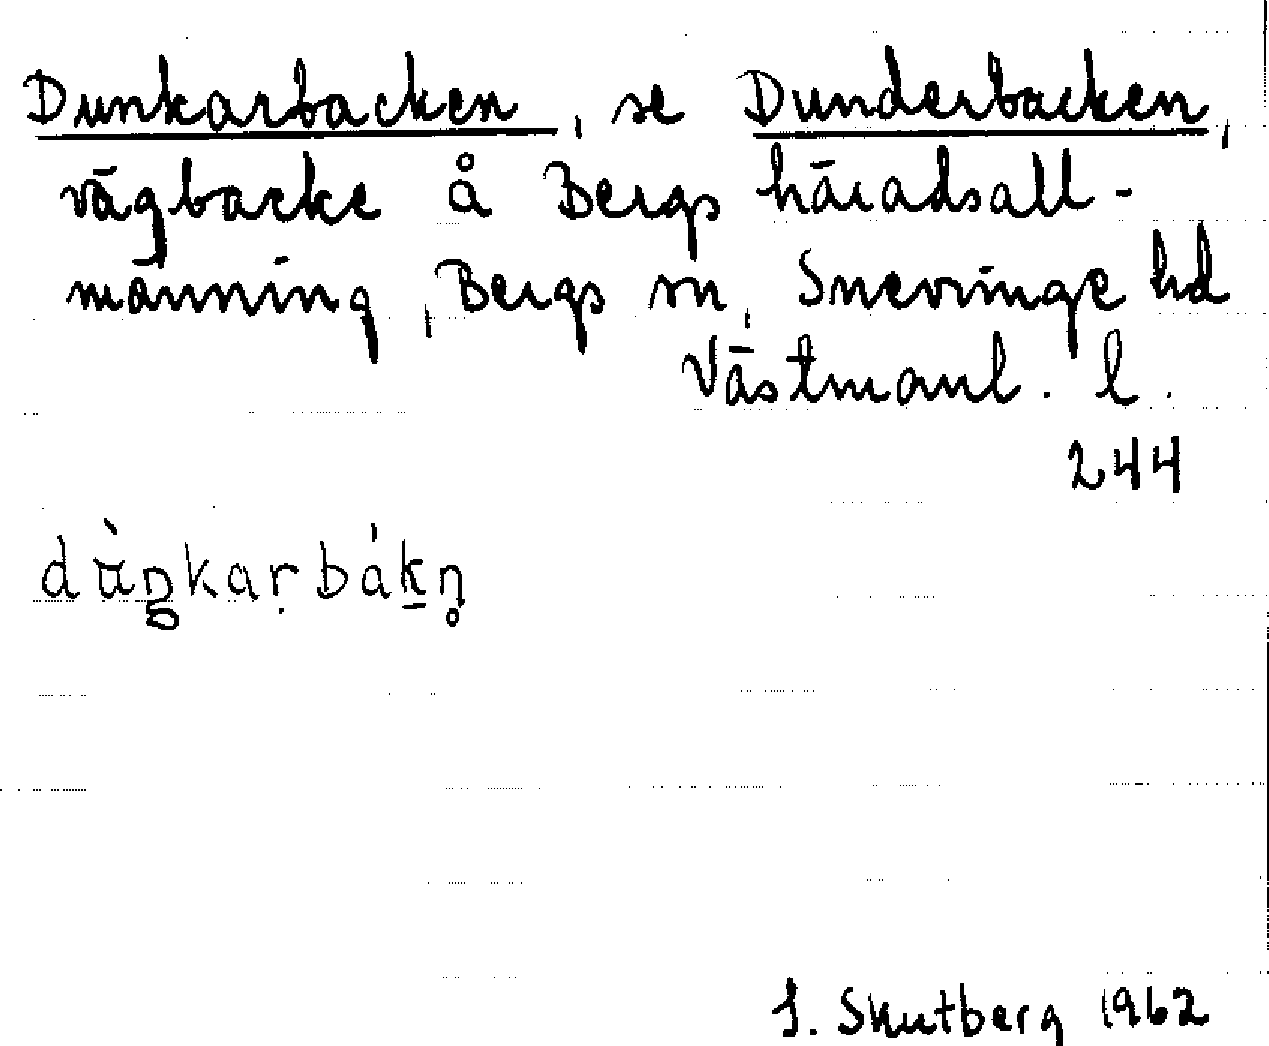 Dunkarbacken, se Dunderbacken,
vägbacke å Bergs häradsall-
männing, Bergs sn, Snevringe hd
Västmanl. l.
244
dùŋkaṛbák̠n̥
S. Skutberg 1962